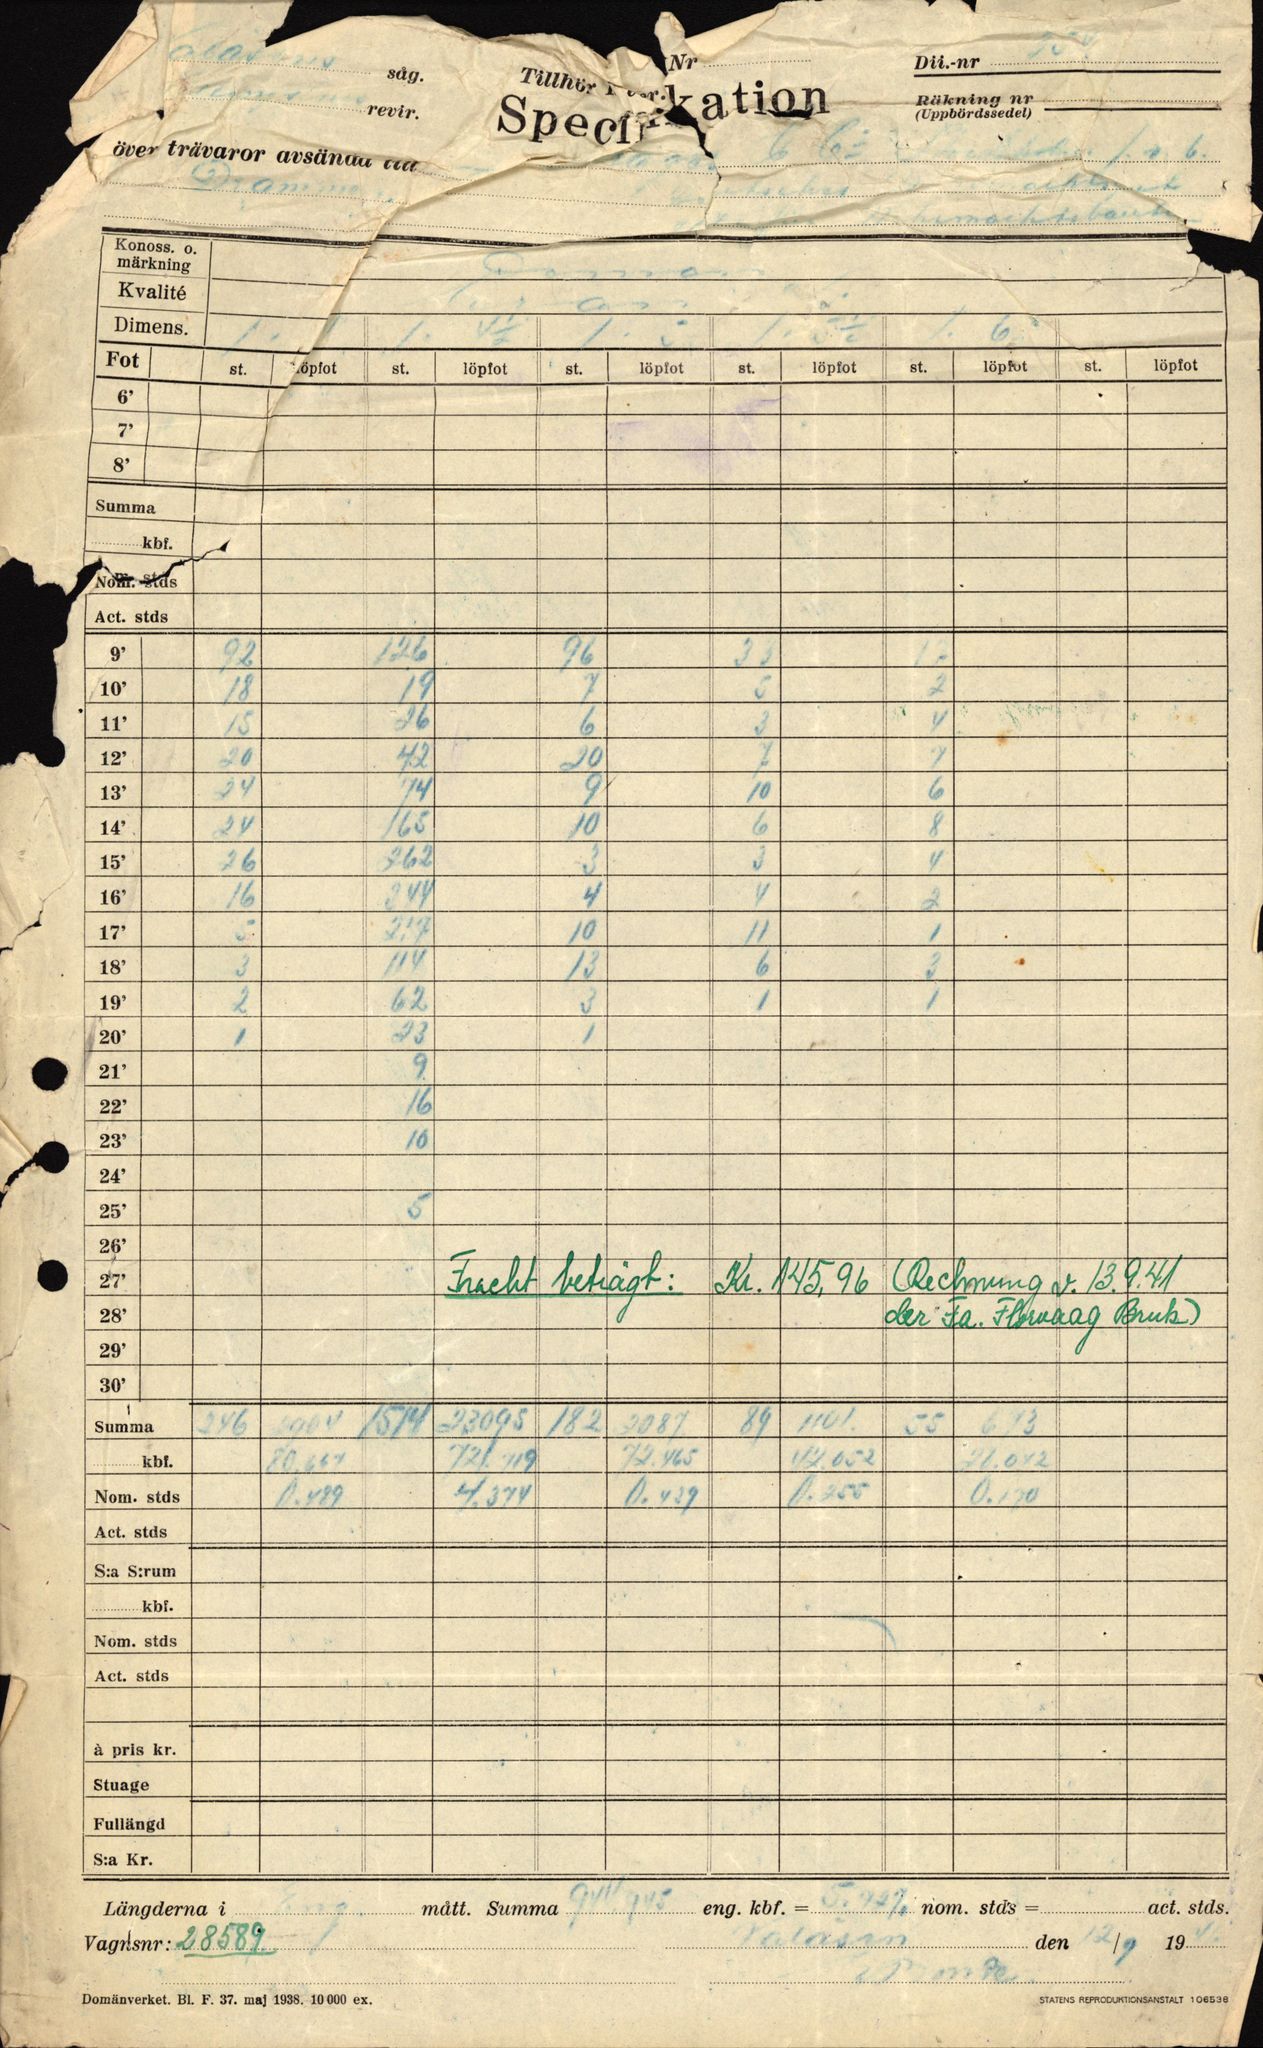 Valåsens såg.
revir.
Tillhör
Nr
Dii.-nr
Specifikation
Räkning nr
(Uppbördssedel)
över trävaror avsända till
Drammen
Konoss. o. märkning
Kvalité
Dimens. 1. 1. 4½ 1. 5 1. 5½ 1. 6
Fot st. löpfot st. löpfot st. löpfot st. löpfot st. löpfot st. löpfot
6'
7'
8'
Summa
kbf.
Nom. stds
Act. stds
9' 92 126 96 33
10' 18 19 7 5 2
11' 15 26 6 3 4
12' 20 42 20 7 7
13' 24 74 9 10 6
14' 24 165 10 6 8
15' 26 262 3 3 4
16' 16 344 4 4 2
17' 5 217 10 11 1
18' 3 114 13 6 3
19' 2 62 3 1 1
20' 1 23 1
21' 9
22' 16
23' 10
24'
25' 5
26'
27' Fracht beträgt: Kr. 145,96 (Rechnung v. 13.9.41
28' der Fa. Florvaag Bruk)
29'
30'
Summa 246 2904 1514 23095 182 2087 89 1101 55 673
kbf. 80.667 721.719 72.465 42.052
Nom. stds 0.489 4.374 0.439 0.255 0.170
Act. stds
S:a S:rum
kbf.
Nom. stds
Act. stds
à pris kr.
Stuage
Fullängd
S:a Kr.
Längderna i Eng. mått. Summa 944.945 eng. kbf. = 5.727 nom. stds = act. stds.
Vagnsnr: 28589 Valåsen den 12/9 1941
Domänverket. Bl. F. 37. maj 1938. 10 000 ex.
STATENS REPRODUKTIONSANSTALT 106538